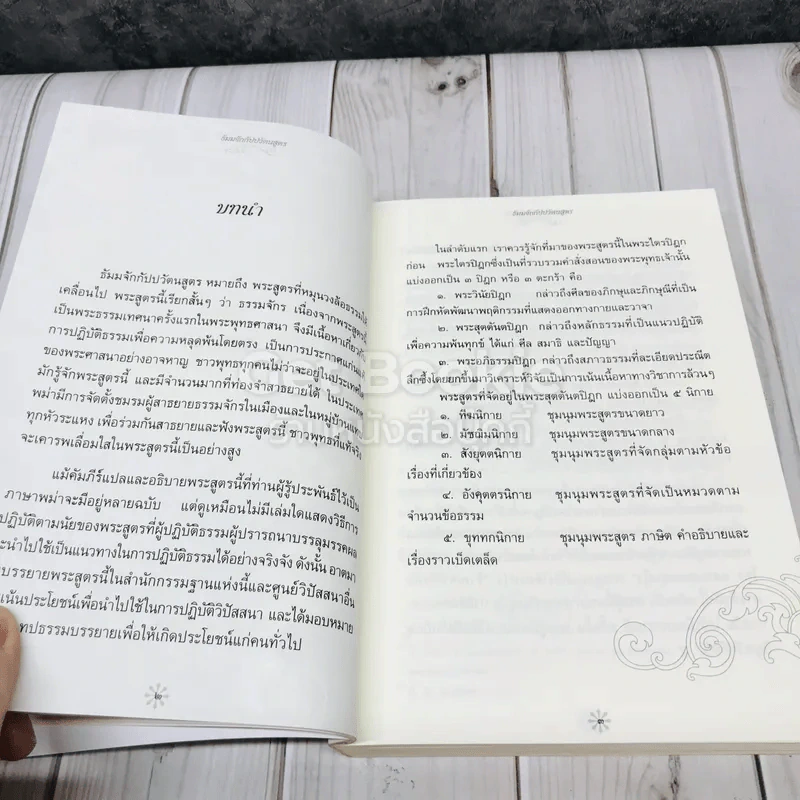 ธัมมจักกัปปวัตนสูตร
บทนำ
ธัมมจักกัปปวัตนสูตร หมายถึง พระสูตรที่หมุนวงล้อธรรมให้
เคลื่อนไป พระสูตรนี้เรียกสั้นๆ ว่า ธรรมจักร เนื่องจากพระสูตรนี้
เป็นพระธรรมเทศนาครั้งแรกในพระพุทธศาสนา จึงมีเนื้อหาเกี่ยวกับ
การปฏิบัติธรรมเพื่อความหลุดพ้นโดยตรง เป็นการประกาศแก่นแท้
ของพระศาสนาอย่างอาจหาญ ชาวพุทธทุกคนไม่ว่าจะอยู่ในประเทศใด
มักรู้จักพระสูตรนี้ และมีจำนวนมากที่ท่องจำสาธยายได้ ในประเทศ
พม่ามีการจัดตั้งชมรมผู้สาธยายธรรมจักรในเมืองและในหมู่บ้านแทบ
ทุกหัวระแหง เพื่อร่วมกันสาธยายและฟังพระสูตรนี้ ชาวพุทธที่แท้จริง
จะเคารพเลื่อมใสในพระสูตรนี้เป็นอย่างสูง
แม้คัมภีร์แปลและอธิบายพระสูตรนี้ที่ท่านผู้รู้ประพันธ์ไว้เป็น
ภาษาพม่าจะมีอยู่หลายฉบับ แต่ดูเหมือนไม่มีเล่มใดแสดงวิธีการ
ปฏิบัติตามนัยของพระสูตรที่ผู้ปฏิบัติธรรมผู้ปรารถนาบรรลุมรรคผล
ะนำไปใช้เป็นแนวทางในการปฏิบัติธรรมได้อย่างจริงจัง ดังนั้น อาตมา
บรรยายพระสูตรนี้ในสำนักกรรมฐานแห่งนี้และศูนย์วิปัสสนาอื่น
เน้นประโยชน์เพื่อนำไปใช้ในการปฏิบัติวิปัสสนา และได้มอบหมาย
ทปธรรมบรรยายเพื่อให้เกิดประโยชน์แก่คนทั่วไป
ธัมมจักกัปปวัตนสูตร
ในลำดับแรก เราควรรู้จักที่มาของพระสูตรนี้ในพระไตรปิฎก
ก่อน พระไตรปิฎกซึ่งเป็นที่รวบรวมคำสั่งสอนของพระพุทธเจ้านั้น
แบ่งออกเป็น ๓ ปิฎก หรือ ๓ ตะกร้า คือ
๑. พระวินัยปิฎก กล่าวถึงศีลของภิกษุและภิกษุณีที่เป็น
การฝึกหัดพัฒนาพฤติกรรมที่แสดงออกทางกายและวาจา
๒. พระสุตตันตปิฎก กล่าวถึงหลักธรรมที่เป็นแนวปฏิบัติ
เพื่อความพ้นทุกข์ ได้แก่ ศีล สมาธิ และปัญญา
๓. พระอภิธรรมปิฎก กล่าวถึงสภาวธรรมที่ละเอียดประณีต
ลึกซึ้งโดยยกขึ้นมาวิเคราะห์วิจัยเป็นการเน้นเนื้อหาทางวิชาการล้วนๆ
พระสูตรที่จัดอยู่ในพระสุตตันตปิฎก แบ่งออกเป็น ๕ นิกาย
๑. ทีฆนิกาย ชุมนุมพระสูตรขนาดยาว
๒. มัชฌิมนิกาย ชุมนุมพระสูตรขนาดกลาง
๓. สังยุตตนิกาย ชุมนุมพระสูตรที่จัดกลุ่มตามหัวข้อ
เรื่องที่เกี่ยวข้อง
๔. อังคุตตรนิกาย ชุมนุมพระสูตรที่จัดเป็นหมวดตาม
จำนวนข้อธรรม
๕. ขุททกนิกาย ชุมนุมพระสูตร ภาษิต คำอธิบายและ
เรื่องราวเบ็ดเตล็ด